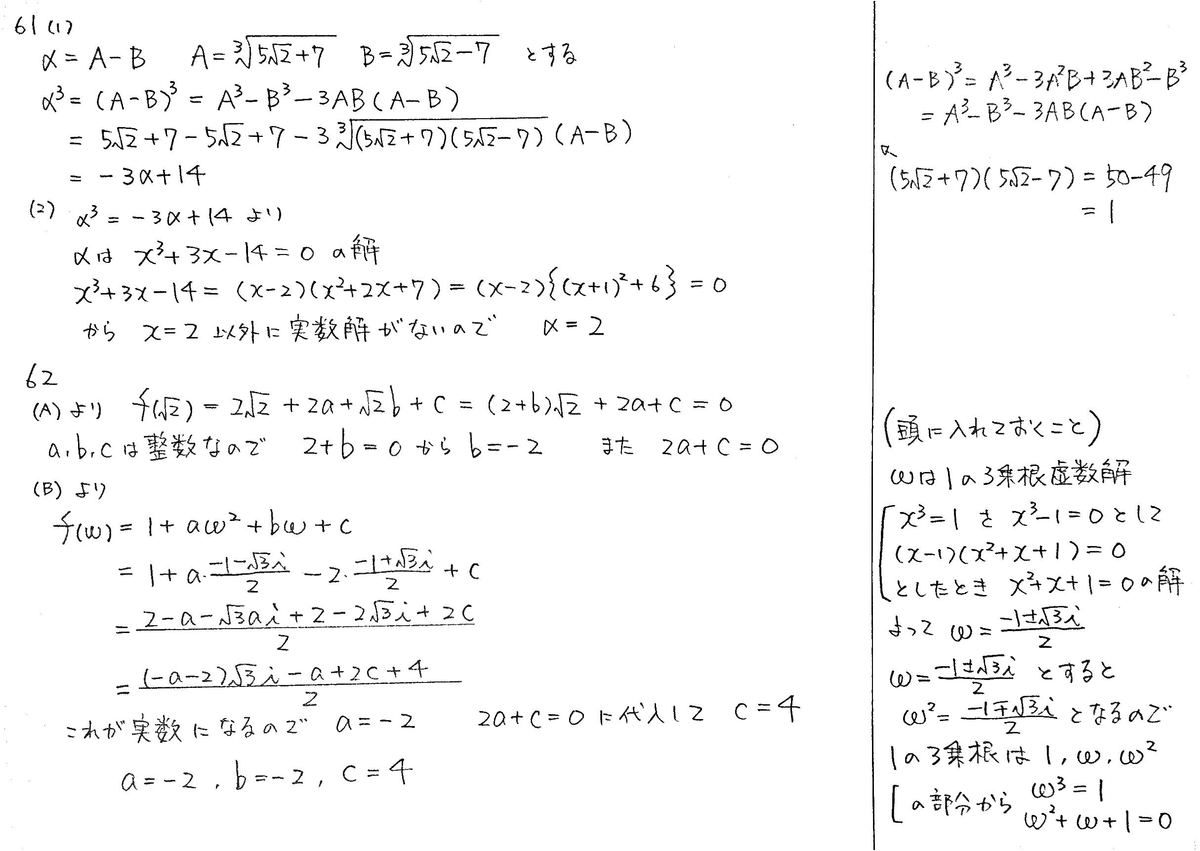 61 (1)
α = A-B  A=∛(5√2+7)  B=∛(5√2-7) とする
α³ = (A-B)³ = A³-B³-3AB(A-B)
= 5√2+7-5√2+7-3∛((5√2+7)(5√2-7)) (A-B)
= -3α+14
(2) α³ = -3α+14 より
αは x³+3x-14=0 の解
x³+3x-14 = (x-2)(x²+2x+7) = (x-2){(x+1)²+6} = 0
から x=2 以外に実数解がないので α=2
62
(A) より f(√2) = 2√2+2a+√2b+c = (2+b)√2+2a+c = 0
a,b,cは整数なので 2+b=0 から b=-2 また 2a+c=0
(B) より
f(ω) = 1+aω²+bω+c
= 1+a·(-1-√3i)/2 -2·(-1+√3i)/2 +c
= (2-a-√3ai+2-2√3i+2c)/2
= ((-a-2)√3i-a+2c+4)/2
これが実数になるので a=-2  2a+c=0 に代入して c=4
a=-2, b=-2, c=4
(A-B)³ = A³-3A²B+3AB²-B³
= A³-B³-3AB(A-B)
(5√2+7)(5√2-7) = 50-49
= 1
(頭に入れておくこと)
ωは1の3乗根虚数解
[ x³=1 を x³-1=0 として
(x-1)(x²+x+1)=0
としたとき x²+x+1=0の解
よって ω=(-1±√3i)/2
ω=(-1±√3i)/2 とすると
ω²=(-1∓√3i)/2 となるので
1の3乗根は 1, ω, ω²
[ の部分から ω³=1
ω²+ω+1=0